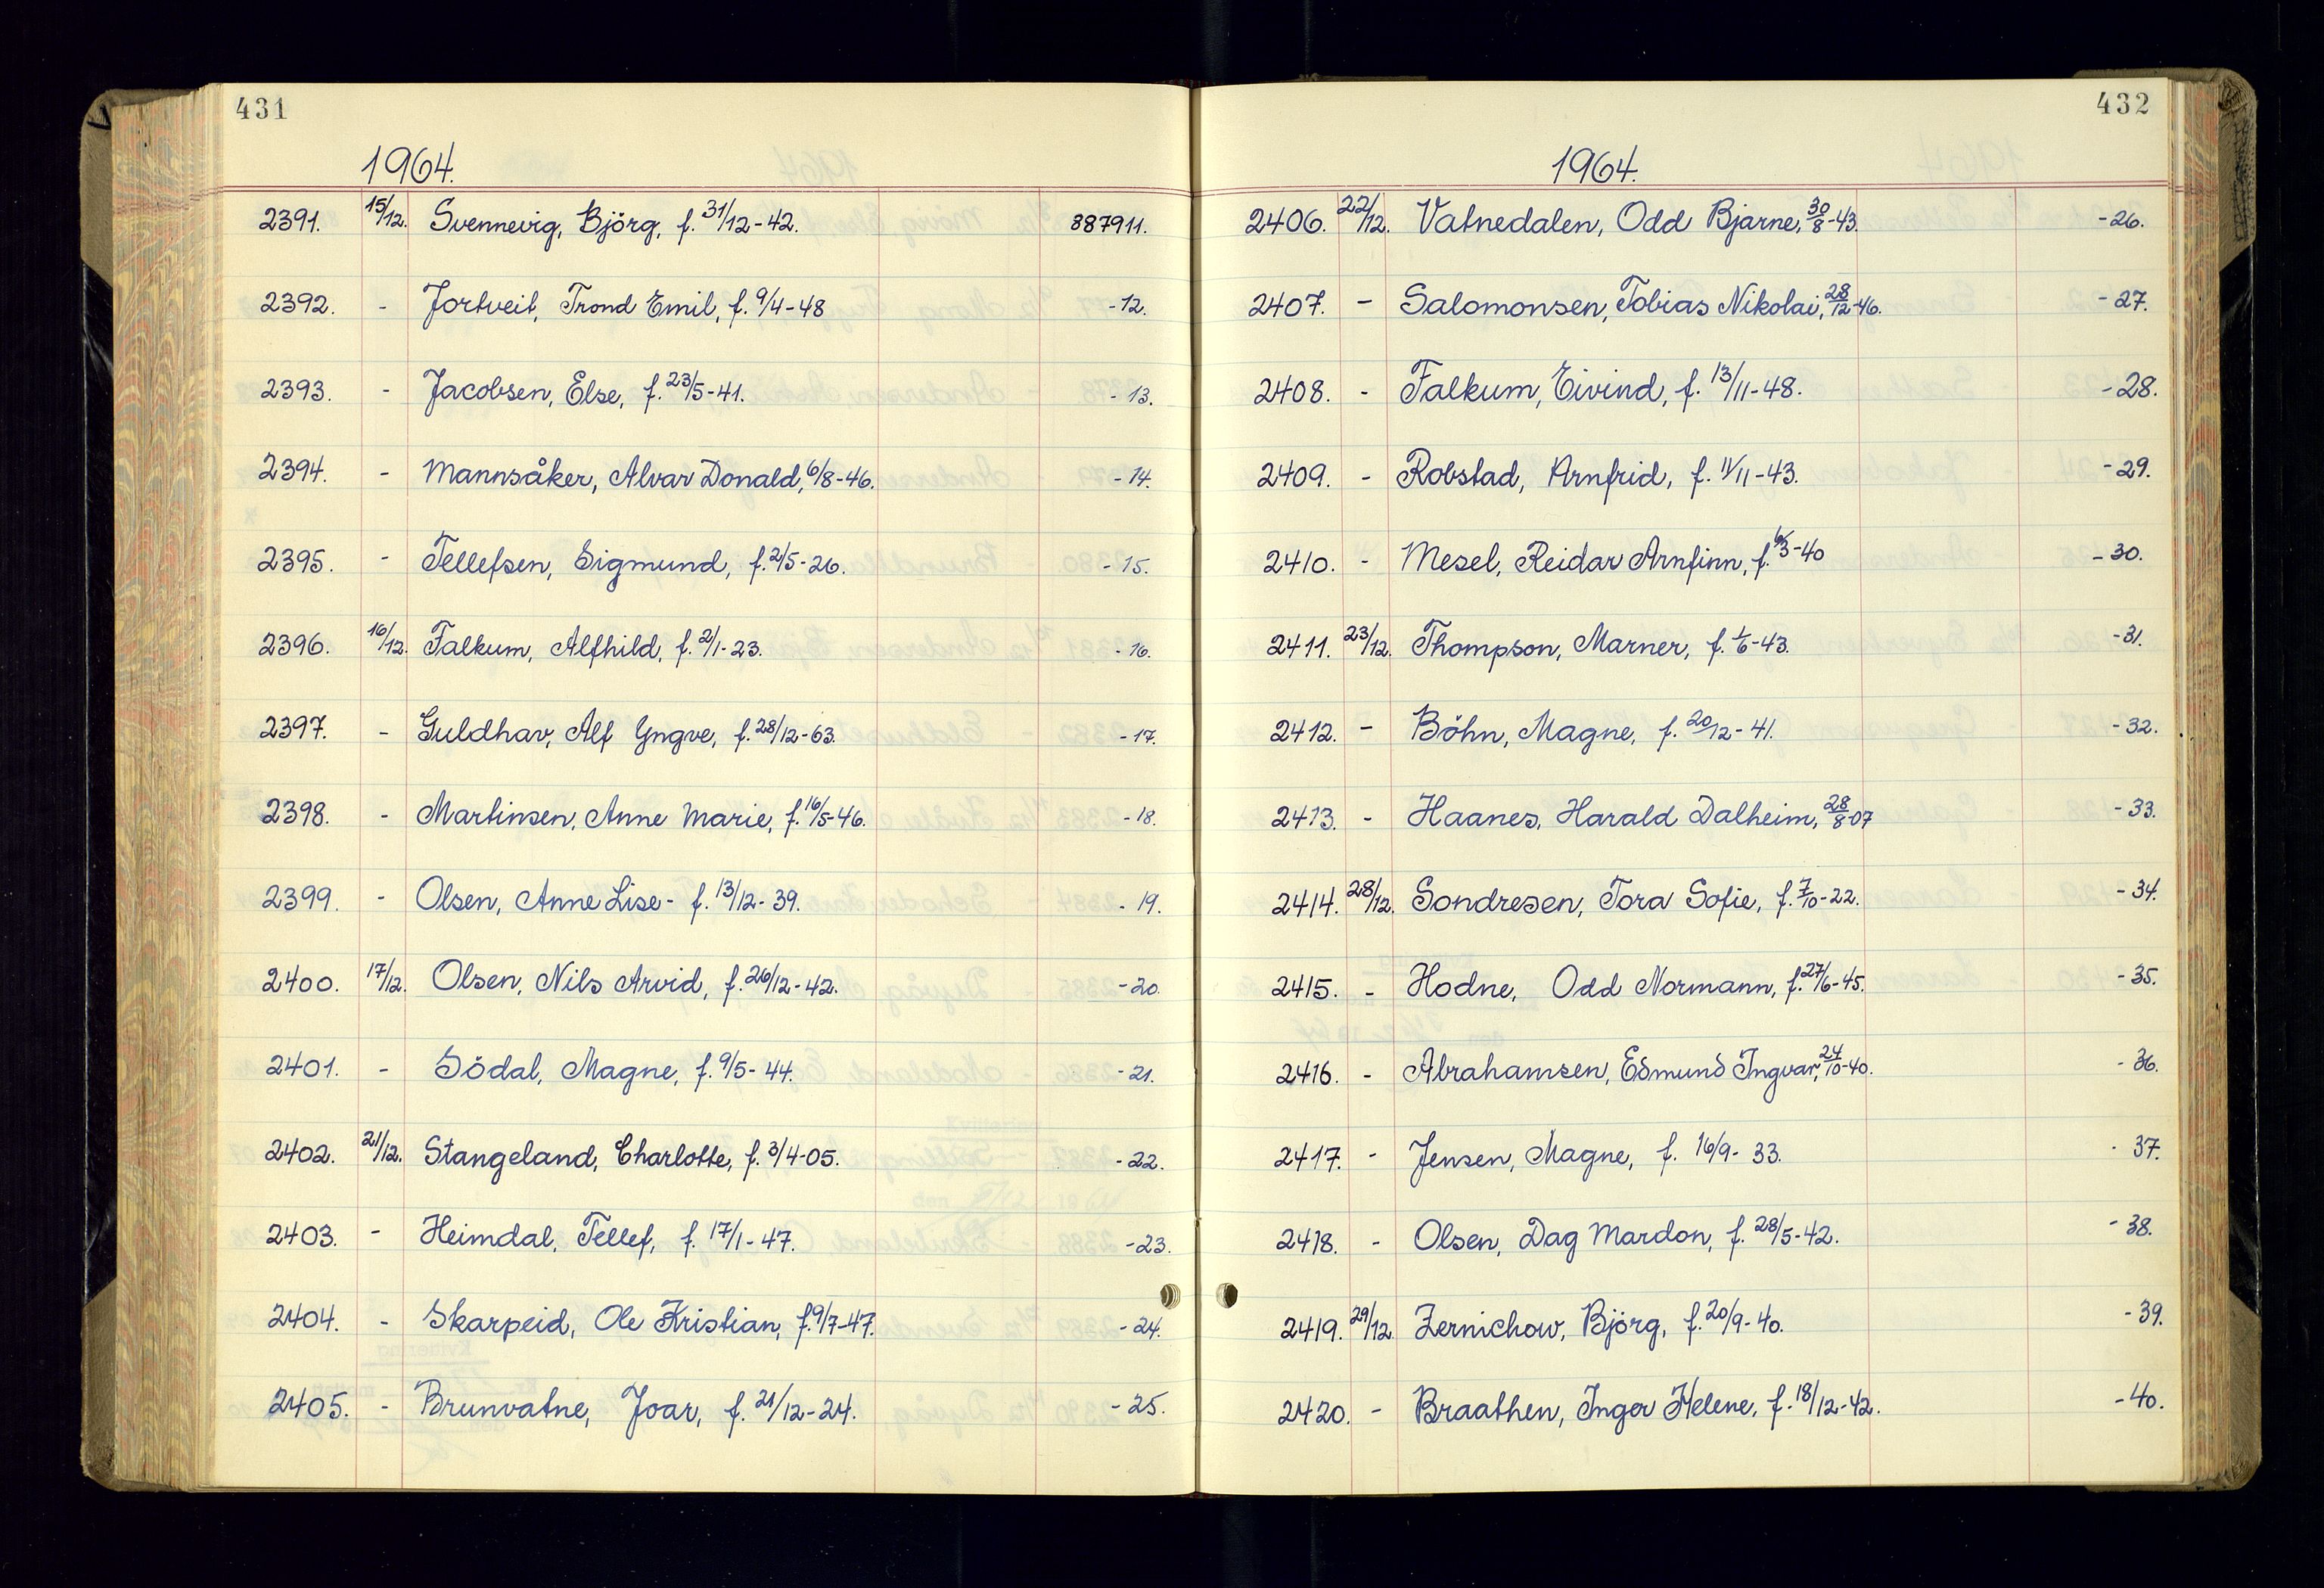 431
1964.
2391. 15/12. Svennevig, Björg, f. 31/12-42. 887911.
2392. - Jortveit, Trond Emil, f. 9/4-48 -12.
2393. - Jacobsen, Else, f. 23/5-41. -13.
2394. - Mannsåker, Alvar Donald, 6/8-46. -14.
2395. - Tellefsen, Sigmund, f. 2/5-26. -15.
2396. 16/12. Falkum, Alfhild, f. 2/1-23. -16.
2397. - Guldhav, Alf Yngve, f. 28/12-63. -17.
2398. - Martinsen, Anne Marie, f. 16/5-46. -18.
2399. - Olsen, Anne Lise- f. 13/12-39. -19.
2400. 17/12. Olsen, Nils Arvid, f. 26/12-42. -20.
2401. - Södal, Magne, f. 9/5-44. -21.
2402. 21/12. Stangeland, Charlotte, f. 3/4-05. -22.
2403. - Heimdal, Tellef, f. 17/1-47. -23.
2404. - Skarpeid, Ole Kristian, f. 9/7-47. -24.
2405. - Brunvatne, Joar, f. 21/12-24. -25.
432
1964.
2406. 22/12. Vatnedalen, Odd Bjarne, 30/8-43. -26.
2407. - Salomonsen, Tobias Nikolai, 28/12-46. -27.
2408. - Falkum, Eivind, f. 13/11-48. -28.
2409. - Robstad, Arnfrid, f. 11/11-43. -29.
2410. - Mesel, Reidar Arnfinn, f. 6/3-40 -30.
2411. 23/12. Thompson, Marner, f. 1/6-43. -31.
2412. - Böhn, Magne, f. 20/12-41. -32.
2413. - Haanes, Harald Dalheim, 28/8-07 -33.
2414. 28/12. Sondresen, Tora Sofie, f. 7/10-22. -34.
2415. - Hodne, Odd Normann, f. 27/6-45. -35.
2416. - Abrahamsen, Edmund Ingvar, 24/10-40. -36.
2417. - Jensen, Magne, f. 16/9-33. -37.
2418. - Olsen, Dag Mardon, f. 28/5-42. -38.
2419. 29/12. Zernichow, Björg, f. 20/9-40. -39.
2420. - Braathen, Inger Helene, f. 18/12-42. -40.